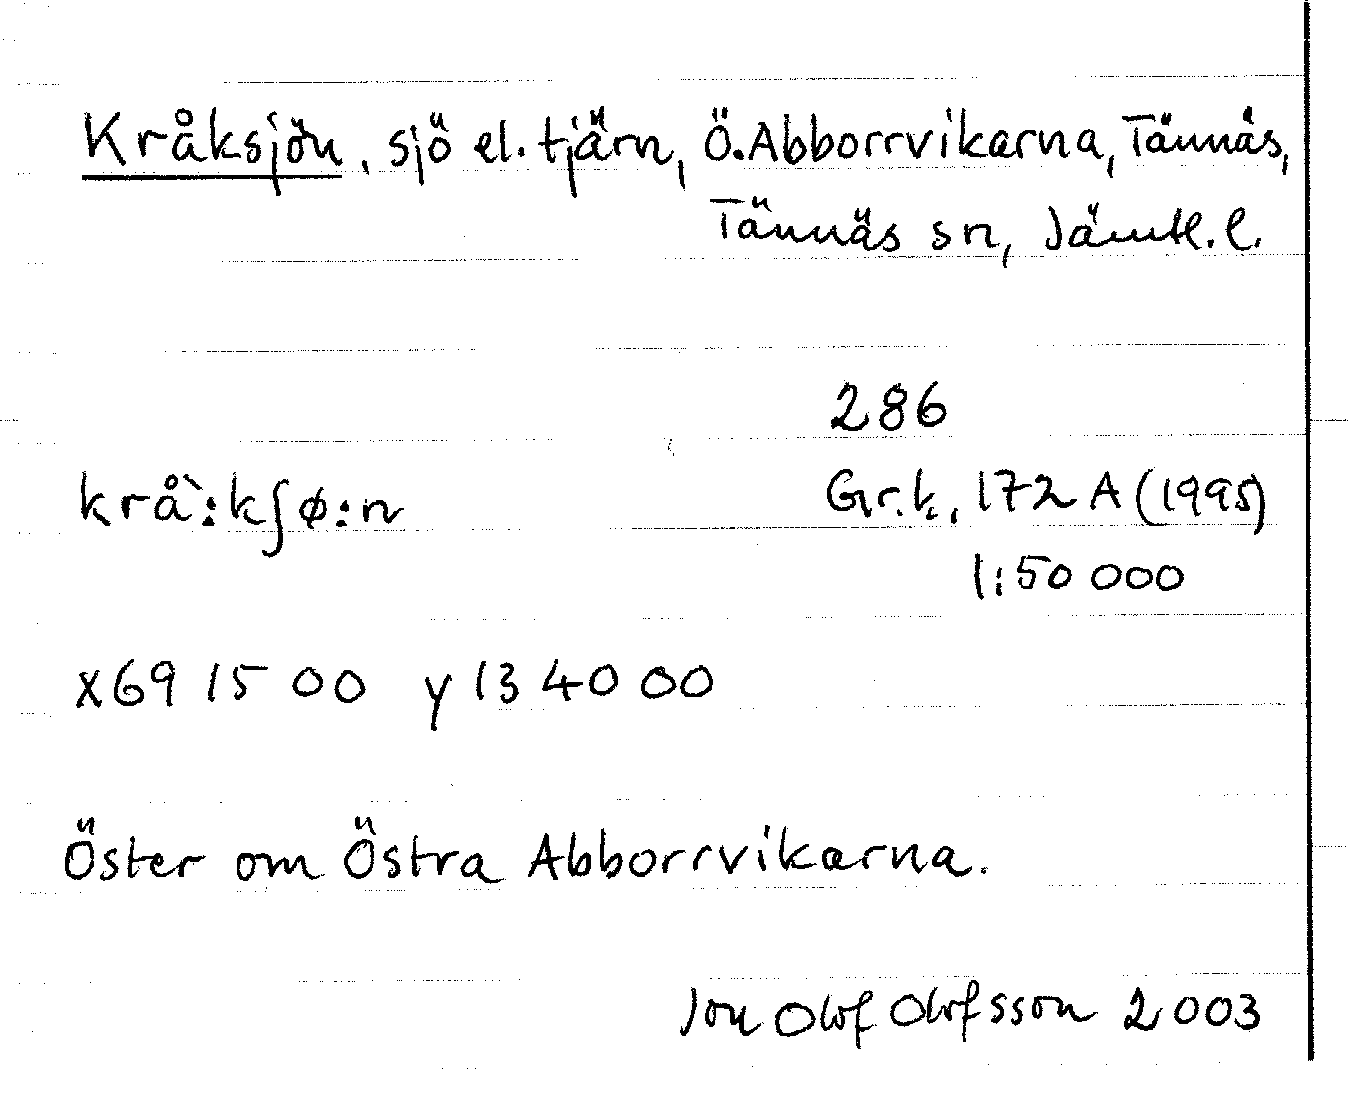 Kråksjön, sjö el. tjärn, Ö. Abborrvikarna, Tännäs,
Tännäs sn, Jämtl. l.
286
krå`:kʃø:n Gr.k. 172 A (1995)
1:50 000
x69 15 00 y 13 40 00
Öster om Östra Abborrvikarna.
Jon Olof Olofsson 2003